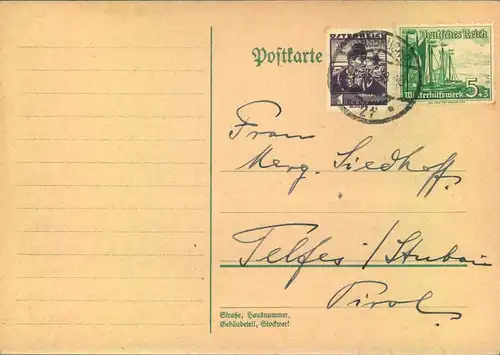 Postkarte
ÖSTERREICH
Deutsches Reich
1
5+3
Winterhilfswerk
2f
Frau
Marg. Siedhoff.
Telfes / Stubai
Tirol.
Straße, Hausnummer,
Gebäudeteil, Stockwerk